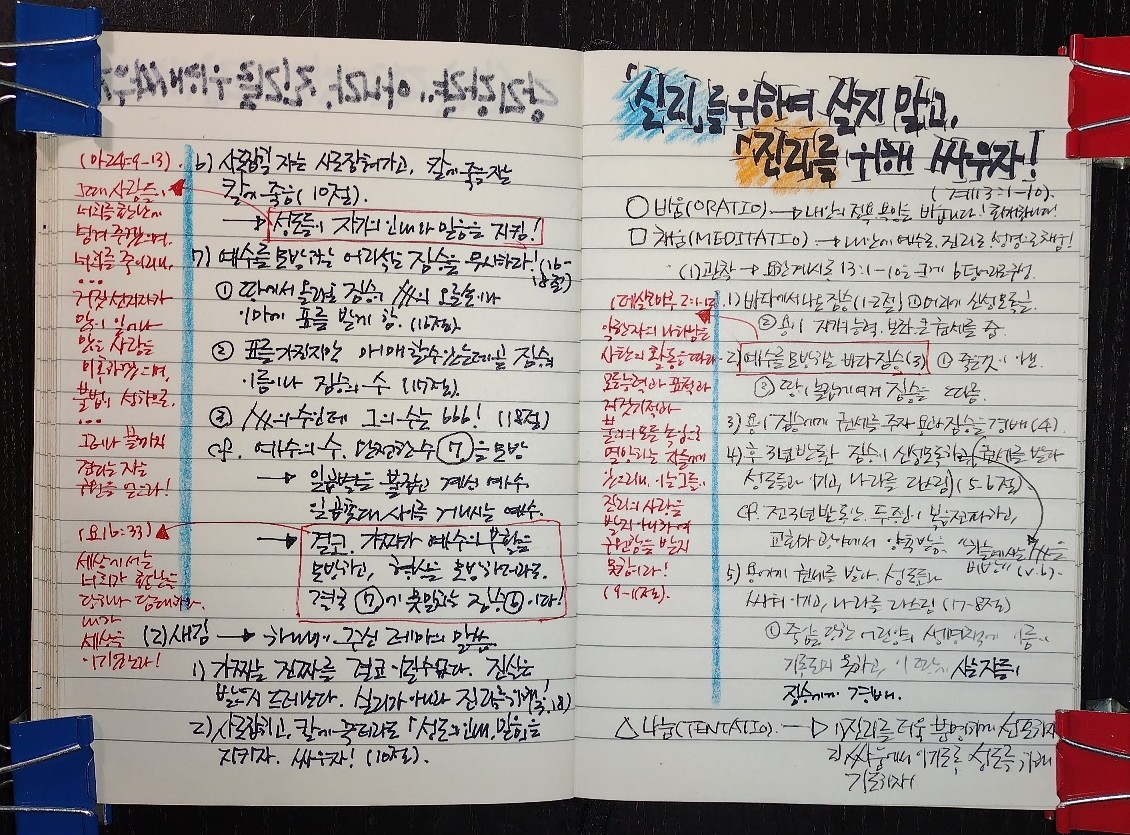 (마24:9-13)
그때 사람들이
너희를 환난에
넘겨 주겠으며,
너희를 죽이리니,
...
거짓 선지자가
많이 일어나
많은 사람을
미혹하겠으며,
불법이 성하므로,
...
그러나 끝까지
견디는 자는
구원을 얻으리라!
(요16:33)
세상에서는
너희가 환난을
당하나 담대하라.
내가
세상을
이기었노라!
6) 사로잡힐 자는 사로잡혀가고, 칼에 죽을 자는
칼에 죽음 (10절).
→ 성도들이 자기의 인내와 믿음을 지킴!
7) 예수를 모방하는 어리석은 짐승을 무시하라! (16-18절)
① 땅에서 올라온 짐승이 사람의 오른손이나
이마에 표를 받게 함. (16절)
② 표를 가진 자만 매매할 수 있는데 곧 짐승의
이름이나 짐승의 수. (17절)
③ 사람의 수인데 그의 수는 666! (18절)
cf. 예수의 수. 완전한 수 ⑦을 모방
→ 일곱별을 붙잡고 계신 예수.
일곱촛대 사이를 거니시는 예수.
→ 결코, 가짜가 예수의 부활을
모방하고, 형상을 모방하더라도.
결국 ⑦에 못미치는 짐승⑥이다!
(2) 새김 → 하나님이 주신 레마의 말씀
1) 가짜는 진짜를 결코 이길 수 없다. 진실은
반드시 드러난다. 실리가 아니라 진리를 위해! (3.18)
2) 사로잡히고, 칼에 죽더라도 「성도의 인내, 믿음」을
지키자. 싸우자! (10절).
「실리」를 위하여 살지 말고,
「진리」를 위해 싸우자!
(계13:1-10).
○ 비움(ORATIO) → 내 안의 죄를 비웁니다! 회개합니다!
□ 채움(MEDITATIO) → 내 안에 예수로, 진리로 성경으로 채움!
(1) 관찰 → 요한계시록 13:1-10은 크게 6단락으로 구성.
(데살로니가후 2:9-12)
악한 자의 나타남은
사탄의 활동을 따라
모든 능력과 표적과
거짓 기적과
불의의 모든 속임으로
멸망하는 자들에게
있으리니, 이는 그들이
진리의 사랑을
받지 아니하여
구원함을 받지
못함이라!
(9-10절).
1) 바다에서 나온 짐승 (1-2절) ① 머리에 신성모독을.
② 용이 자기 능력. 보좌 큰 권세를 줌.
2) 예수를 모방하는 바다짐승(3) ① 죽은것이 나은.
② 땅이 놀랍게 여겨 짐승을 따름.
3) 용이 짐승에게 권세를 주자 용과 짐승을 경배(4).
4) 후 3년반 동안 짐승이 신성모독하고, 권세를 받아
성도들과 이기고, 나라를 다스림 (5-6절)
cf. 전 3년반은 두 증인이 복음전파하고,
교회가 광야에서 양육 받음. "하늘에 사는 사람을
비방!" (v.6).
5) 용에게 권세를 받아. 성도들과
싸워 이기고, 나라를 다스림 (7-8절)
① 죽임을 당한 어린양의 생명책에 이름이
기록되지 못하고, 이 땅에 사는 자들이
짐승에게 경배.
△ 나눔(TENTATIO). → 1) 진리를 더욱 분명하게 선포하자
2) 싸움에서 이기도록 성도를 위해
기도하자!